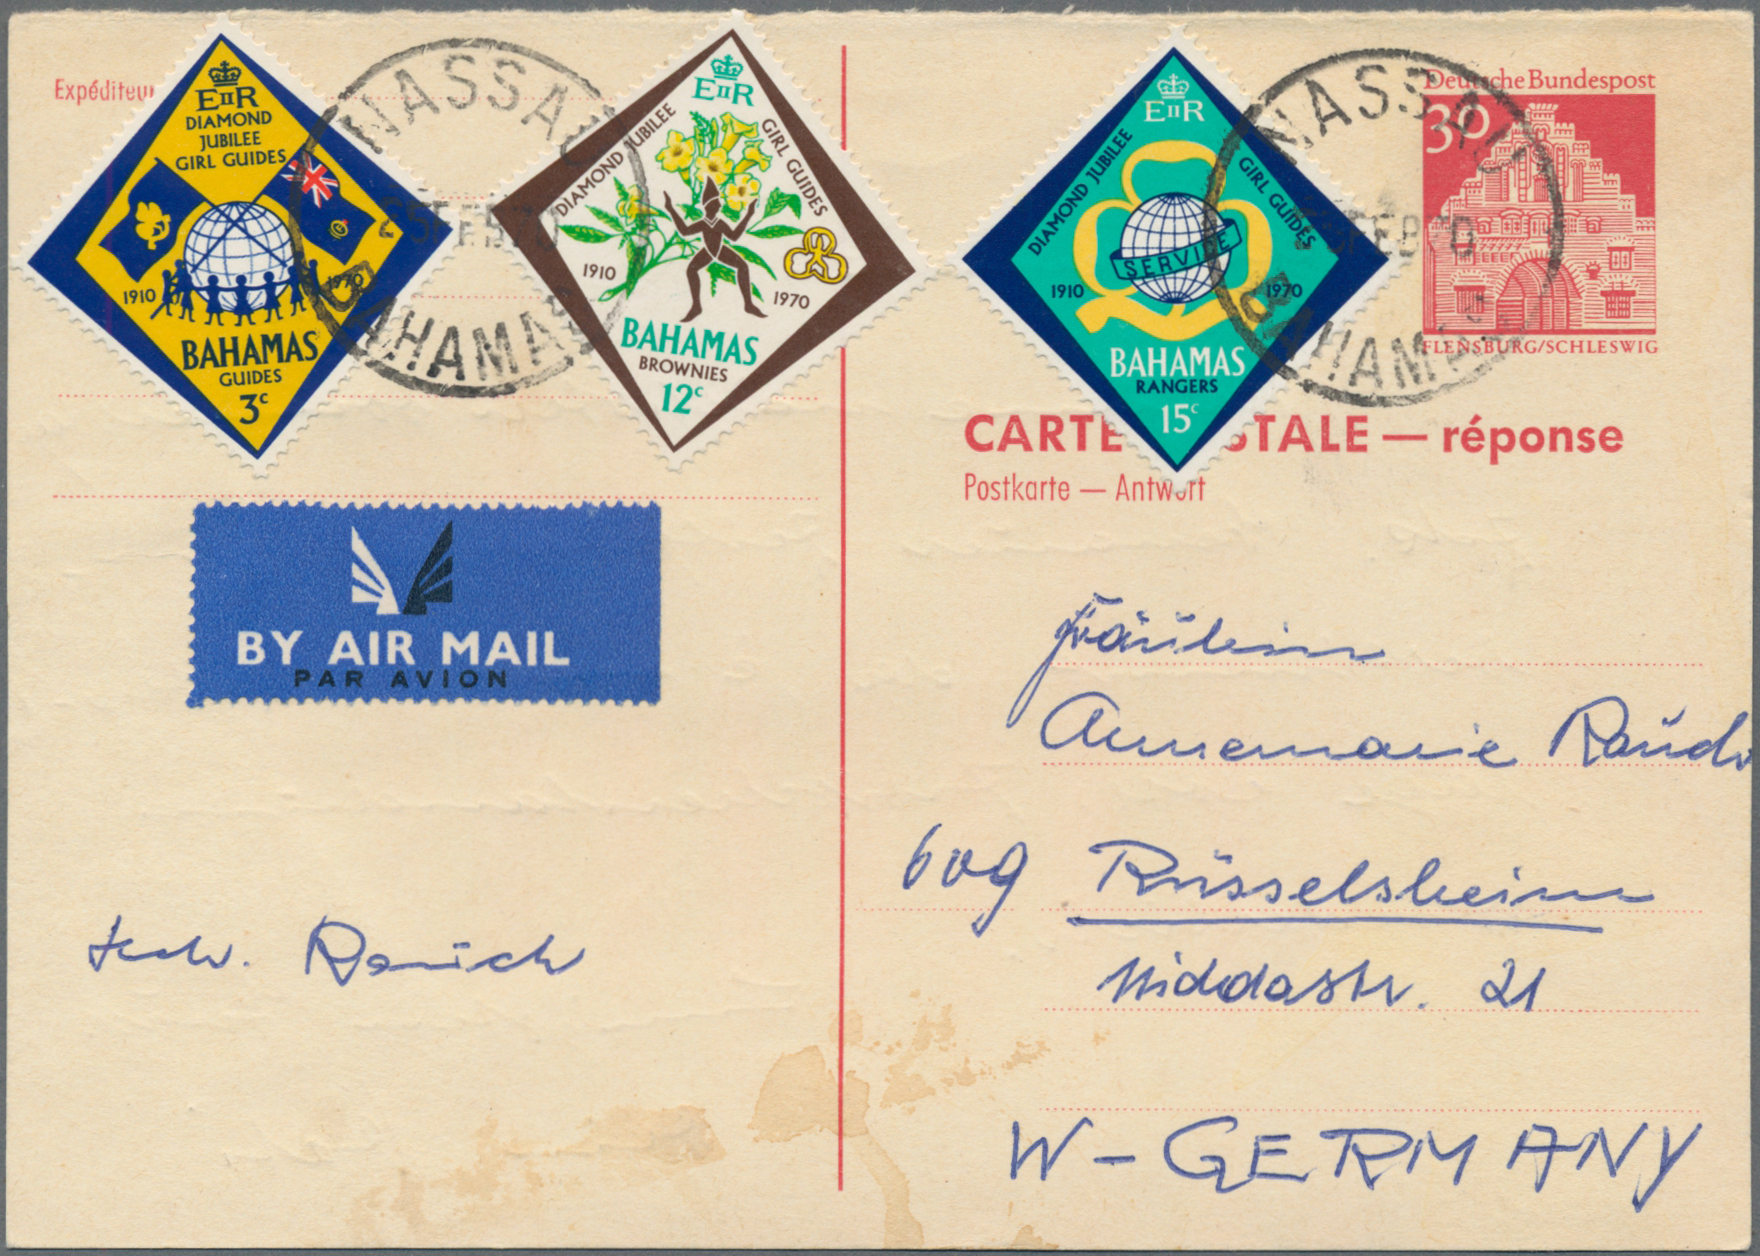 Expéditeu
EIIR
DIAMOND
JUBILEE
GIRL GUIDES
1910 1970
BAHAMAS
GUIDES
3c
NASSAU
BAHAMAS
EIIR
DIAMOND JUBILEE
GIRL GUIDES
1910
1970
BAHAMAS
BROWNIES
12c
EIIR
DIAMOND JUBILEE
GIRL GUIDES
SERVICE
1910 1970
BAHAMAS
RANGERS
15c
NASSAU
BAHAMAS
Deutsche Bundespost
30
FLENSBURG/SCHLESWIG
CARTE STALE — réponse
Postkarte — Antwort
BY AIR MAIL
PAR AVION
Fräulein
Annemarie
609 Rüsselsheim
Niddastr. 21
W-GERMANY